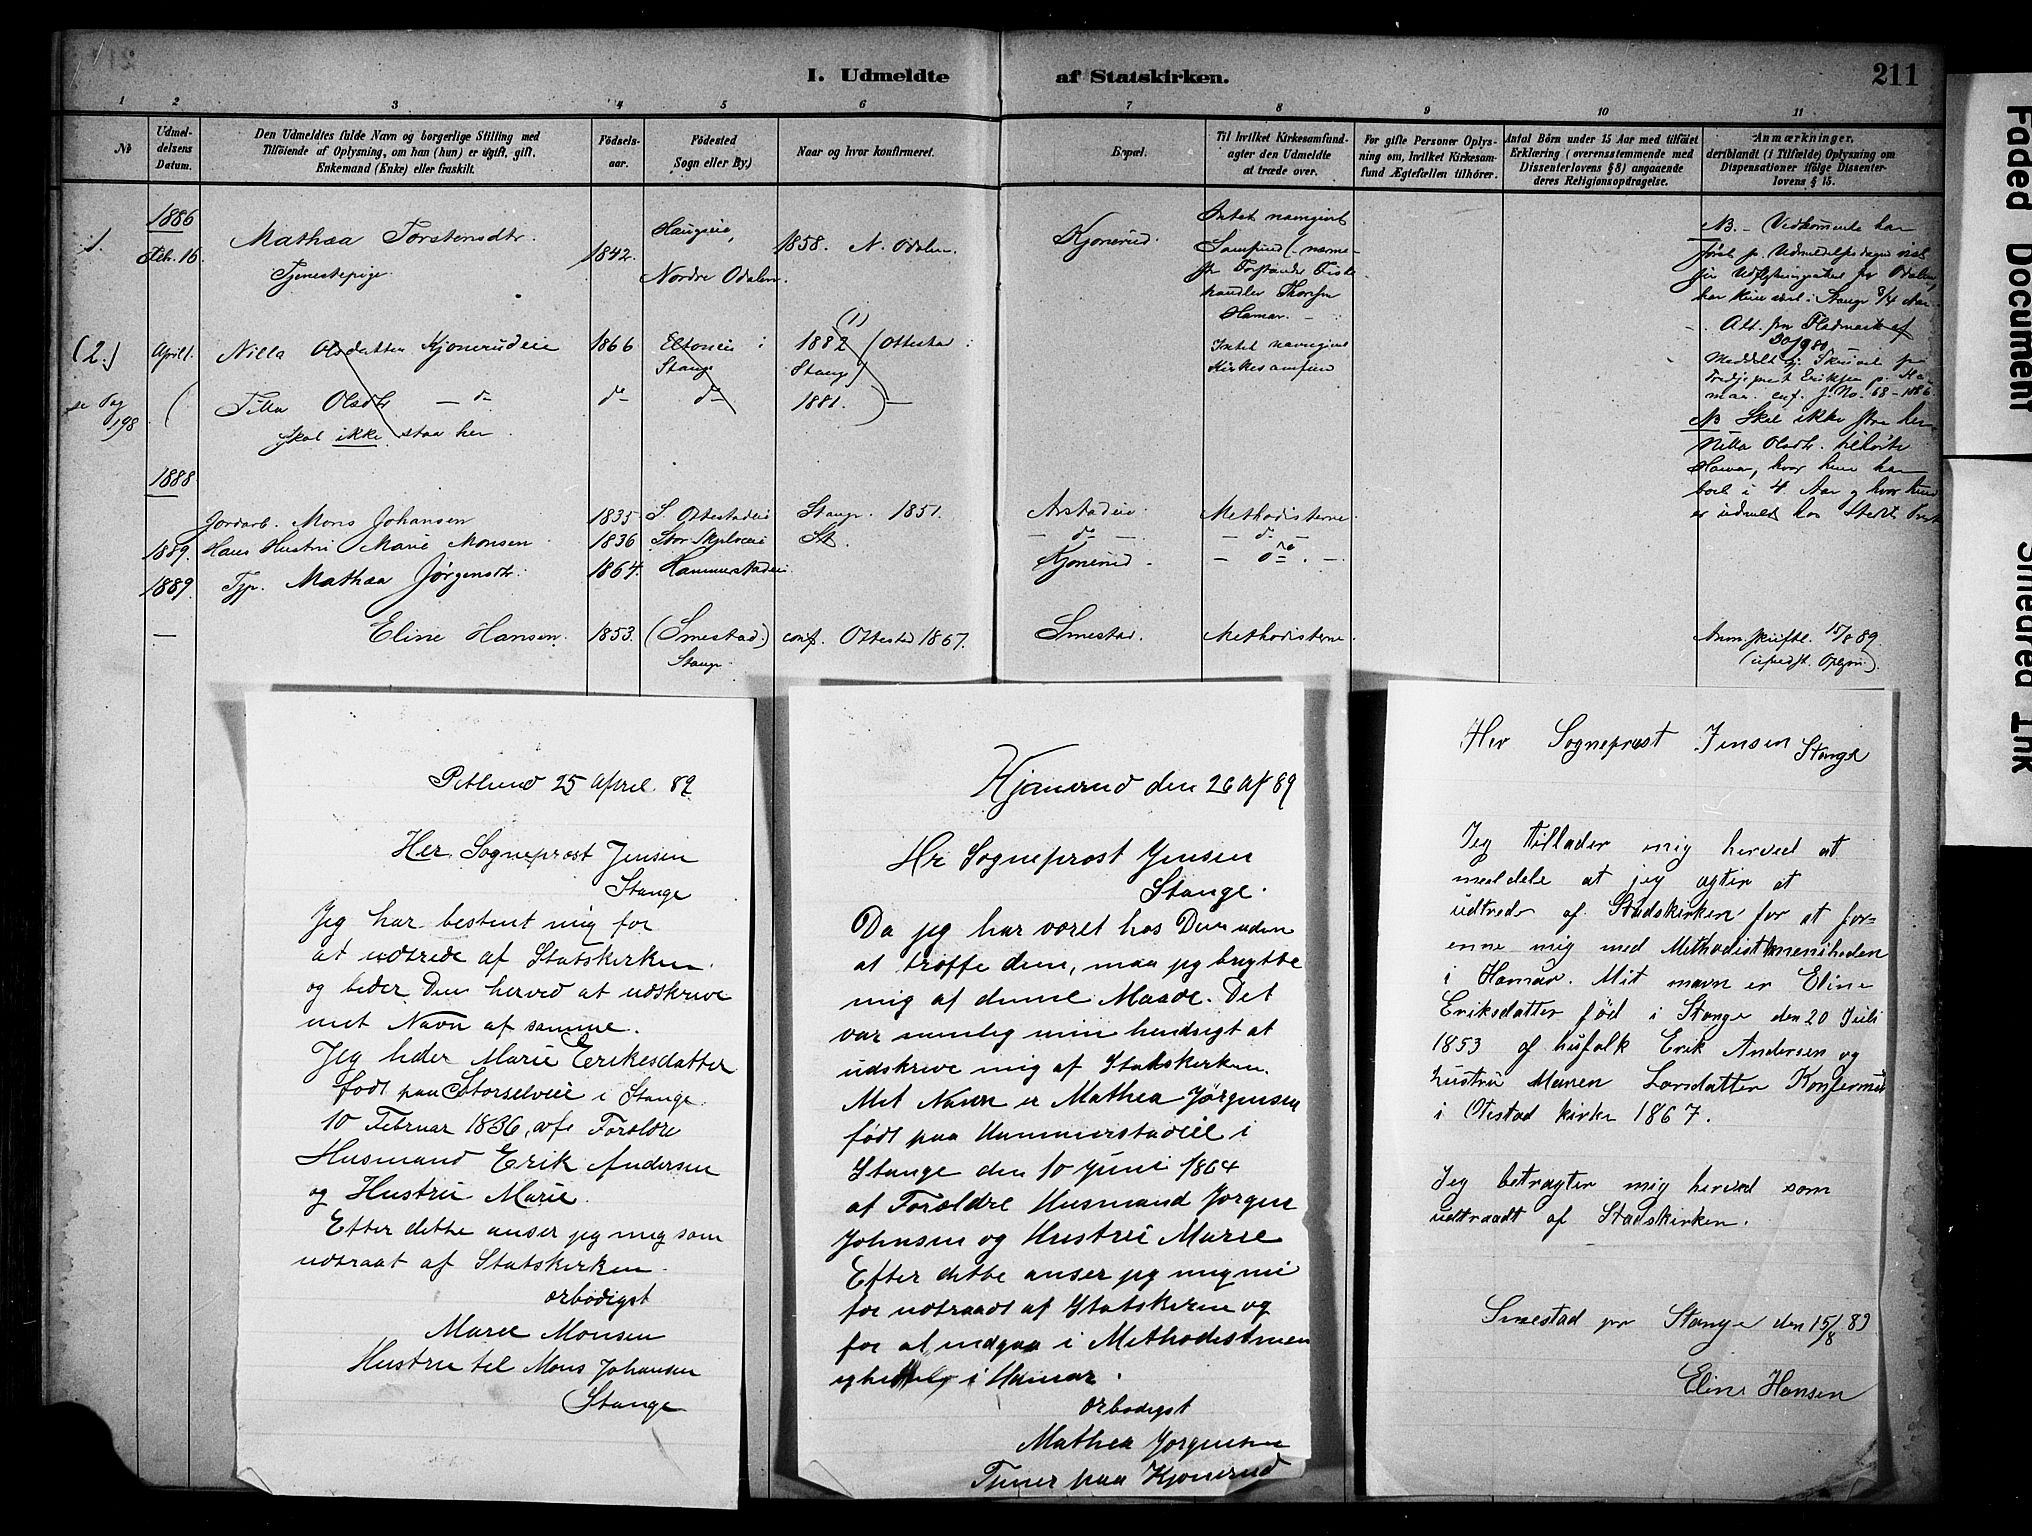 I. Udmeldte af Statskirken.
211
1 2 3 4 5 6 7 8 9 10 11
№
Udmel-
delsens
Datum.
Den Udmeldtes fulde Navn og borgerlige Stilling med
Tilføiende af Oplysning, om han (hun) er ugift, gift,
Enkemand (Enke) eller fraskilt.
Fødsels-
aar.
Fødested
Sogn eller By.)
Naar og hvor konfirmeret.
Bopæl.
Til hvilket Kirkesamfund-
agter den Udmeldte
at træde over.
For gifte Personer Oplys-
ning om, hvilket Kirkesam-
fund Ægtefællen tilhører.
Antal Børn under 15 Aar med tilføiet
Erklæring (overensstemmende med
Dissenterlovens § 8) angaaende
deres Religionsopdragelse.
Anmærkninger,
deriblandt (i Tilfælde) Oplysning om
Dispensationer ifølge Dissenter-
lovens § 15.
1886
1. Febr. 16 Mathea Torstensdtr. 1842. Haugseie, 1858. N. Odalen. Kjonerud. Intet navngivet
Tjenestepige Nordre Odalen. Samfund
Forstander
Thoresen
Hamar.
NB. - Vedkommende har
(2.) April 1. Nilla Olsdatter Kjonerudeie 1866 i 1882 (1) (Ottestad i
Stange Stange)
Intet navngivet
Kirkesamfund
se Pag
198
Tilla Olsdtr. — do do do 1881. —
Skal ikke staa her
NB Skal ikke her
Nilla Olsdtr.
Hamar, hvor hun har
boet i 4 Aar og hvor hun
er udmeldt hos Stedets
1888
Jordarb. Mons Johansen 1835 S. Ottestadeie Stange 1851. Arstadeie Methodisterne
1889. Hans Hustru Marie Monsen 1836 St. — do — — do —
1889 Tjp. Mathea Jørgensdtr. 1864. Hammerstadeie. Kjonerud. — do —
— Eline Hansen. 1853. (Smestad) conf. Ottestad 1867. Smestad. Methodisterne. Anm. skriftl. 15/8 89.
Stange
Petlund 25 April 89
Her Sogneprost Jensen
Stange
Jeg har bestemt mig for
at udtrede af Statskirken.
og beder Dem herved at udskrive
met Navn af samme.
Jeg heder Marie Erikesdatter
født paa Storselveie i Stange
10 Februar 1836, af Foroldre
Husmand Erik Andersen
og Hustru Marie
Efter dette anser jeg mig som
udtraat af Statskirken.
ørbødigst
Marie Monsen
Hustru til Mons Johansen
Stange
Kjonerud den 26 Ap 89
Hr Sogneprost Jensen
Stange.
Da jeg har været hos Dem uden
at træffe dem, maa jeg benytte
mig af denne Maade. Det
var nemlig min hendsigt at
udskrive mig af Statskirken.
Met Navn er Mathea Jørgensen
født paa Hammerstadeie i
Stange den 10 Juni 1864
af Foroldre Husmand Jorgen
Johnsen og Hustru Marie
Efter dette anser jeg mig nu
for udtraadt af Statskirken og
for at indgaa i Methodistmen
i Hamar.
ørbødigst
Mathea Jorgensen
Tjener paa Kjonerud
Her Sogneprost Jensen Stange
Jeg tillader mig herved at
meddele at jeg agter at
udtrede af Stadskirken for at for=
enne mig med Methodistmenigheden
i Hamar. Mit navn er Eline
Eriksdatter fød i Stange den 20 Juli
1853 af husfolk Erik Andersen og
hustru Maren Larsdatter Konfermert
i Otestad kirke 1867.
Jeg betragter mig herved som
udtraadt af Stadskirken.
Smestad pr Stange den 15/8 89
Eline Hansen
Faded Document
Smedred Ink